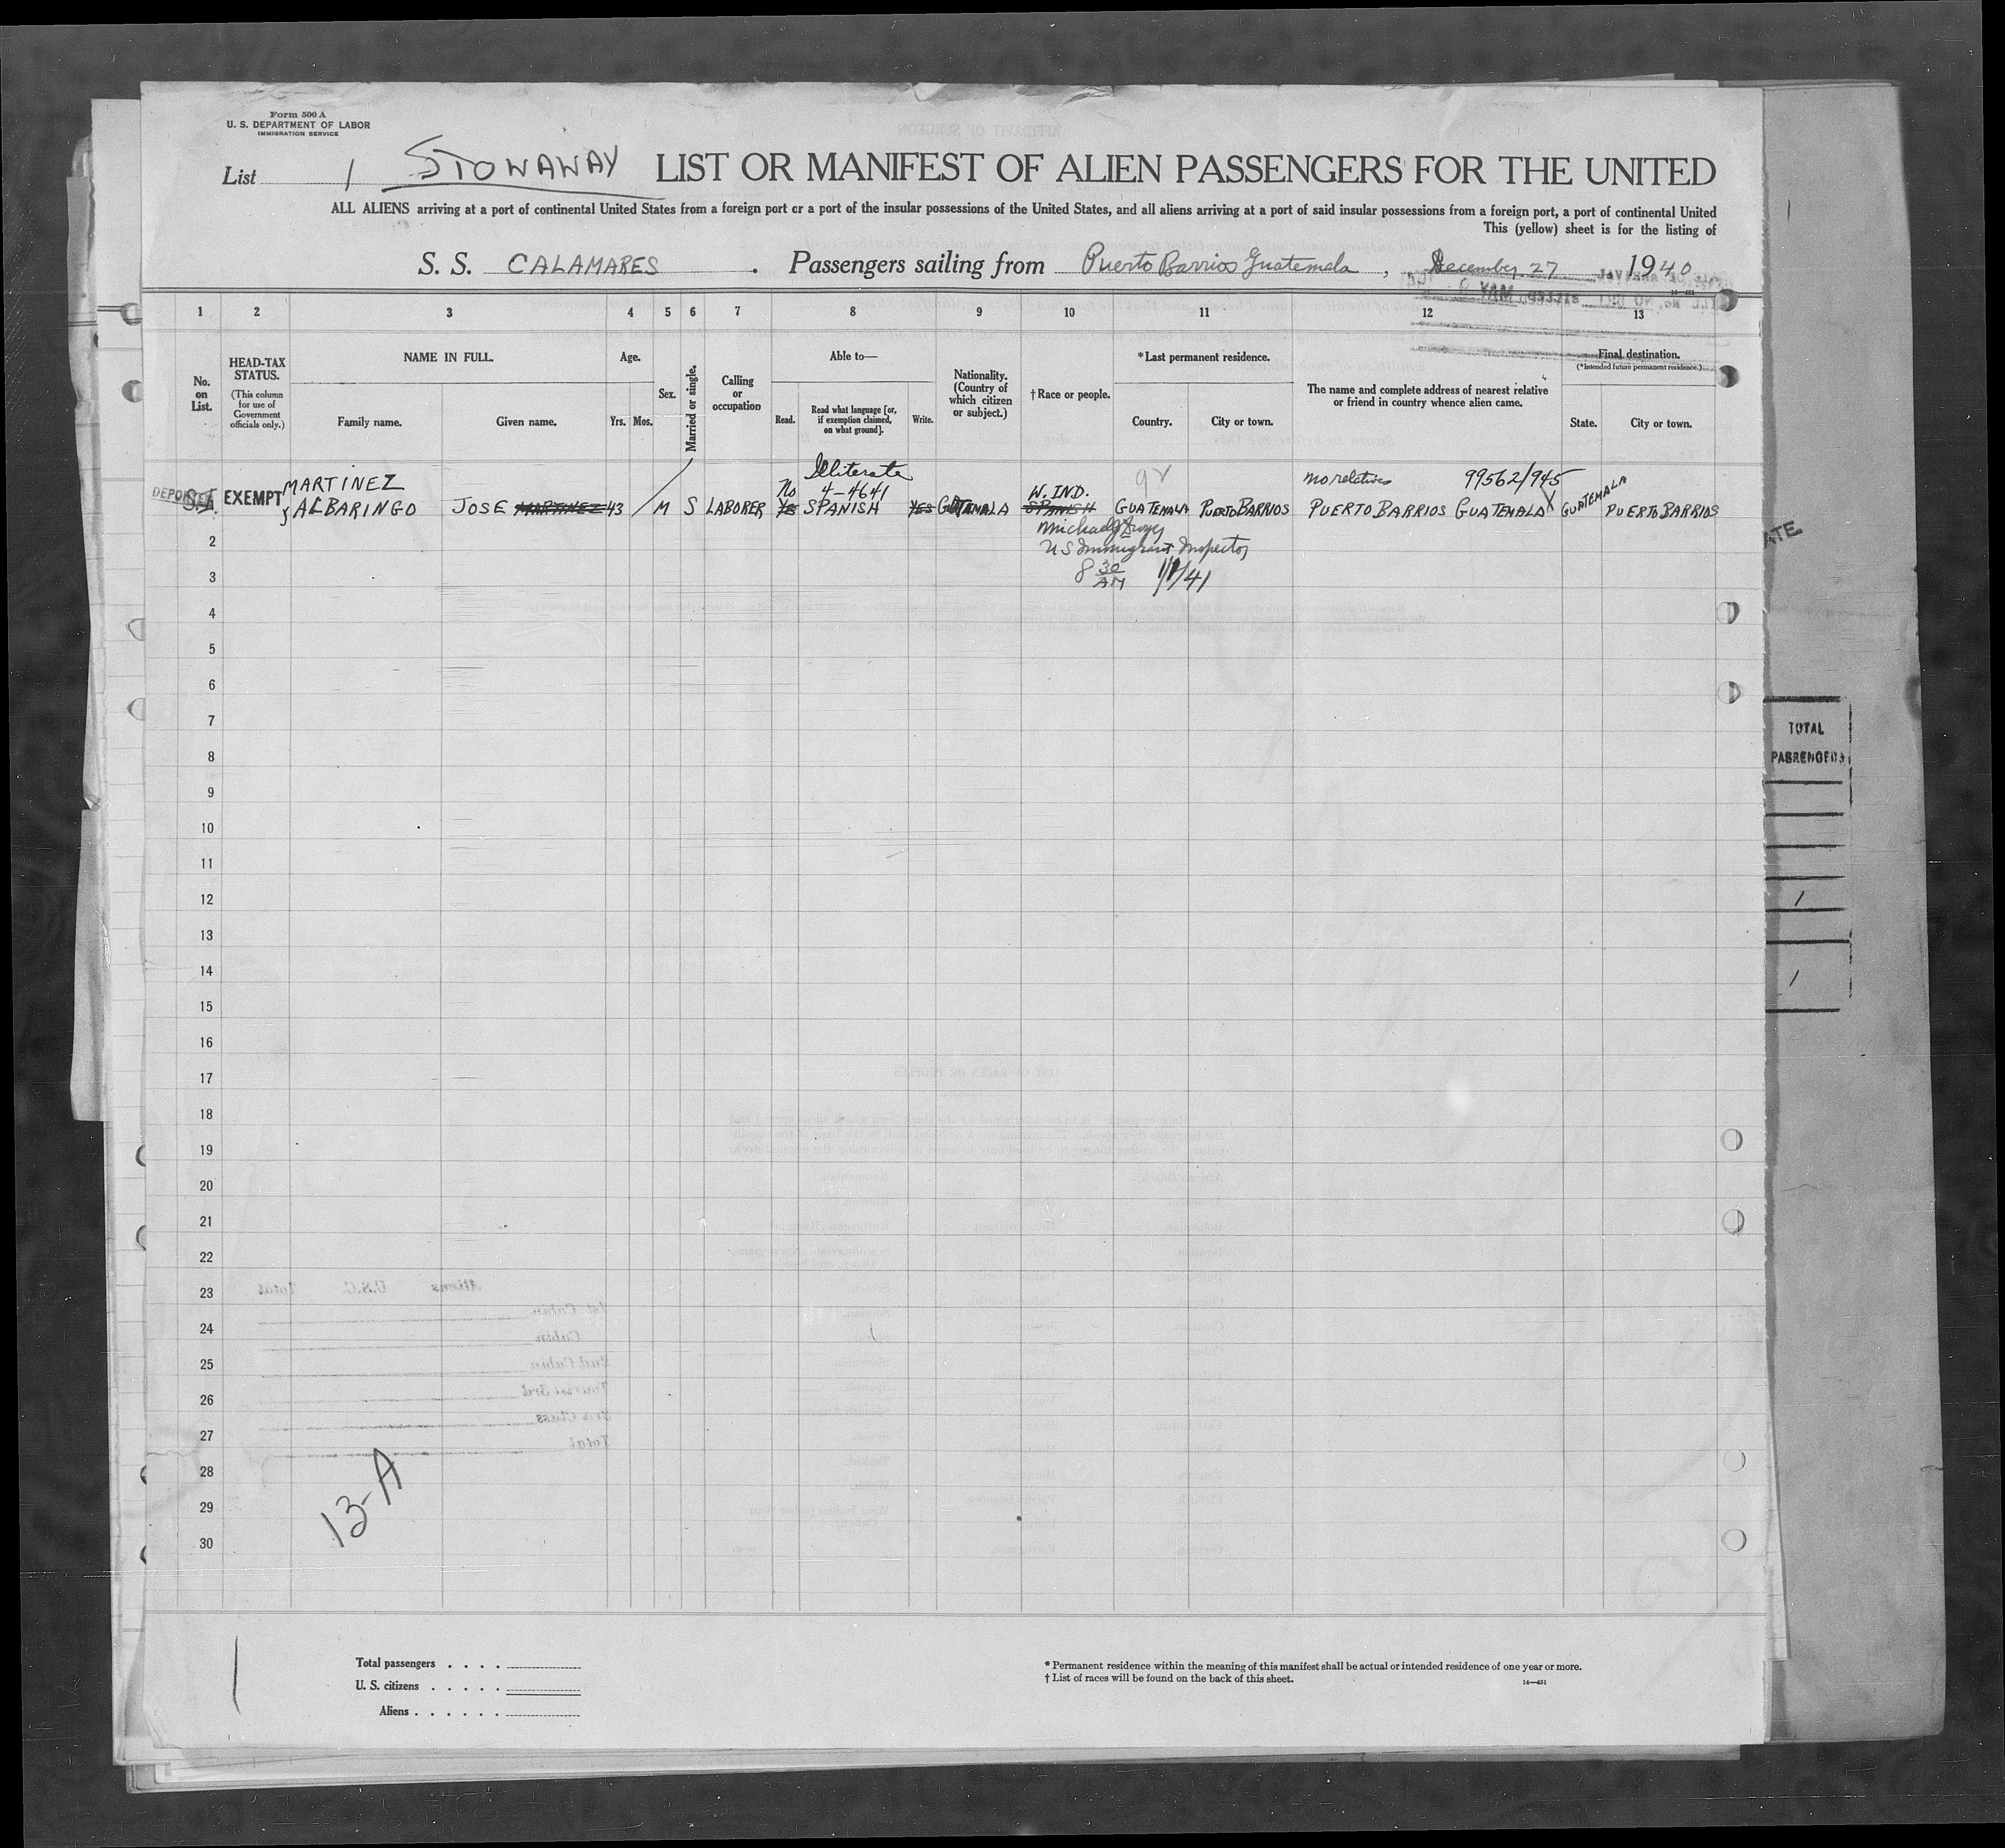 Form 500 A
U. S. DEPARTMENT OF LABOR
IMMIGRATION SERVICE
List 1 STOWAWAY LIST OR MANIFEST OF ALIEN PASSENGERS FOR THE UNITED
ALL ALIENS arriving at a port of continental United States from a foreign port or a port of the insular possessions of the United States, and all aliens arriving at a port of said insular possessions from a foreign port, a port of continental United
This (yellow) sheet is for the listing of
S. S. CALAMARES . Passengers sailing from Puerto Barrios Guatemala , December 27 1940
1 2 3 4 5 6 7 8 9 10 11 12 13
No. on List.
HEAD-TAX STATUS.
(This column for use of Government officials only.)
NAME IN FULL.
Family name. Given name.
Age.
Yrs. Mos.
Sex.
Married or single.
Calling or occupation
Able to—
Read. Read what language [or, if exemption claimed, on what ground]. Write.
Nationality. (Country of which citizen or subject.)
† Race or people.
* Last permanent residence.
Country. City or town.
The name and complete address of nearest relative or friend in country whence alien came.
Final destination.
(*Intended future permanent residence.)
State. City or town.
MARTINEZ Illiterate no relatives 99562/945
No 4-4641 W. IND.
DEPORTED EXEMPT ALBARINGO JOSE MARTINEZ 43 M S LABORER Yes SPANISH YES GUATEMALA SPANISH GUATEMALA PUERTO BARRIOS PUERTO BARRIOS GUATEMALA GUATEMALA PUERTO BARRIOS
2 US Immigrant Inspector
3 8 30 AM 1/1/41
4
5
6
7
8
9
10
11
12
13
14
15
16
17
18
19
20
21
22
23
24
25
26
27
28
29
30
13-A
TOTAL
PASSENGERS
1
1
1
Total passengers . . . .
U. S. citizens . . . . .
Aliens . . . . . .
* Permanent residence within the meaning of this manifest shall be actual or intended residence of one year or more.
† List of races will be found on the back of this sheet.
14—431